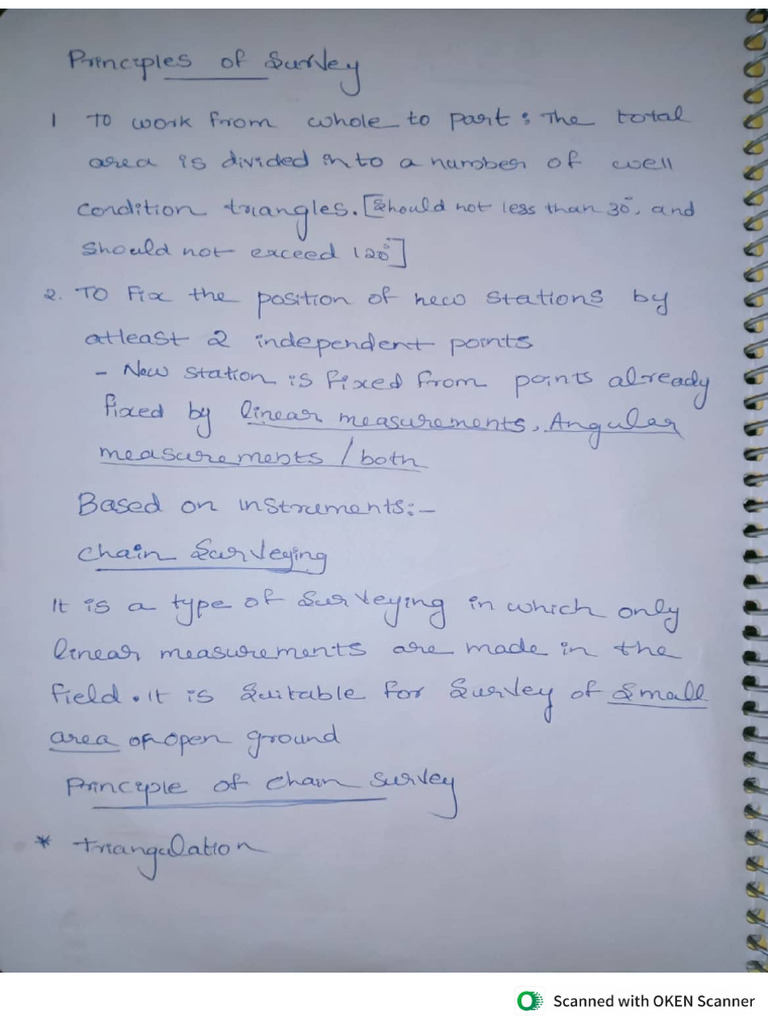 Principles of Survey
1 To work from whole to part: The total
area is divided into a number of well
condition triangles. [Should not less than 30°, and
should not exceed 120°]
2. To Fix the position of new stations by
atleast 2 independent points
- New station is fixed from points already
fixed by linear measurements, Angular
measurements / both
Based on instruments:-
Chain Surveying
It is a type of surveying in which only
linear measurements are made in the
field. It is suitable for survey of small
area of open ground
Principle of chain survey
* Triangulation
Scanned with OKEN Scanner